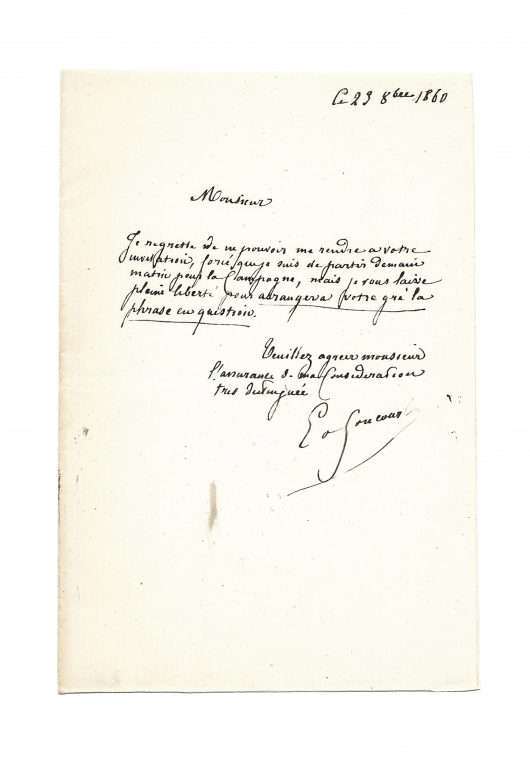 Ce 23 8bre 1860
Monsieur
Je regrette de ne pouvoir me rendre a votre
invitation, forcé que je suis de partir demain
matin pour la Campagne, mais je vous laisse
pleine liberté pour arranger a votre gré la
phrase en question.
Veuillez agreer monsieur
l'assurance de ma Consideration
tres distinguée
E de Goncourt